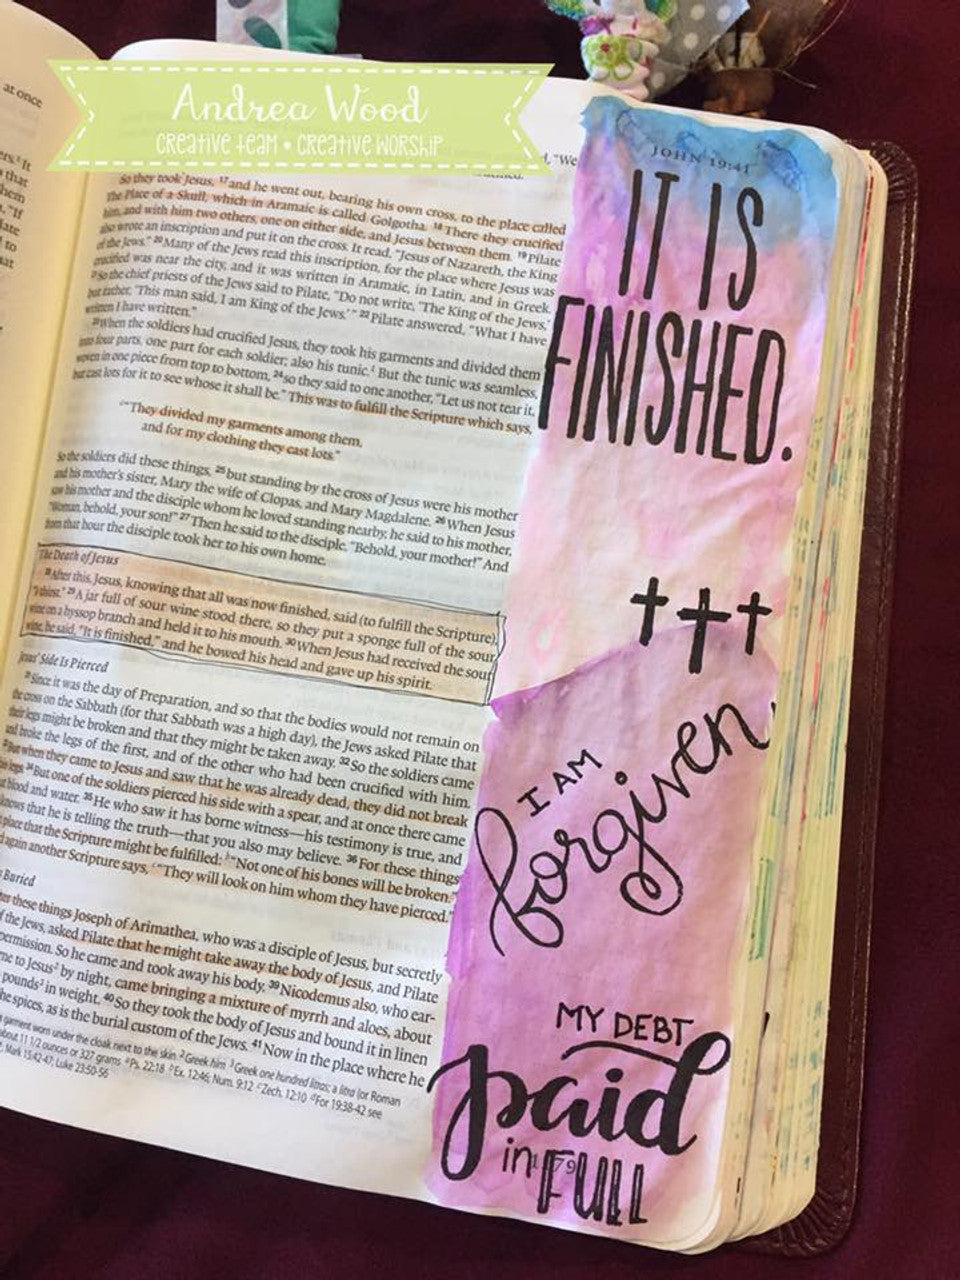 at once
Andrea Wood
CREATIVE TEAM • CREATIVE WORSHIP
"We
JOHN 19:41
IT IS
FINISHED.
I AM
forgiven,
MY DEBT
paid
in FULL
So they took Jesus, 17and he went out, bearing his own cross, to the place called
The Place of a Skull, which in Aramaic is called Golgotha. 18There they crucified
him, and with him two others, one on either side, and Jesus between them. 19Pilate
also wrote an inscription and put it on the cross. It read, "Jesus of Nazareth, the King
of the Jews." 20Many of the Jews read this inscription, for the place where Jesus was
crucified was near the city, and it was written in Aramaic, in Latin, and in Greek.
21So the chief priests of the Jews said to Pilate, "Do not write, 'The King of the Jews,'
but rather, 'This man said, I am King of the Jews.'" 22Pilate answered, "What I have
written I have written."
23When the soldiers had crucified Jesus, they took his garments and divided them
into four parts, one part for each soldier; also his tunic.1 But the tunic was seamless,
woven in one piece from top to bottom, 24so they said to one another, "Let us not tear it,
but cast lots for it to see whose it shall be." This was to fulfill the Scripture which says,
"They divided my garments among them,
and for my clothing they cast lots."
So the soldiers did these things, 25but standing by the cross of Jesus were his mother
and his mother's sister, Mary the wife of Clopas, and Mary Magdalene. 26When Jesus
saw his mother and the disciple whom he loved standing nearby, he said to his mother,
"Woman, behold, your son!" 27Then he said to the disciple, "Behold, your mother!" And
from that hour the disciple took her to his own home.
The Death of Jesus
28After this, Jesus, knowing that all was now finished, said (to fulfill the Scripture),
"I thirst." 29A jar full of sour wine stood there, so they put a sponge full of the sour
wine on a hyssop branch and held it to his mouth. 30When Jesus had received the sour
wine, he said, "It is finished," and he bowed his head and gave up his spirit.
Jesus' Side Is Pierced
31Since it was the day of Preparation, and so that the bodies would not remain on
the cross on the Sabbath (for that Sabbath was a high day), the Jews asked Pilate that
their legs might be broken and that they might be taken away. 32So the soldiers came
and broke the legs of the first, and of the other who had been crucified with him.
33But when they came to Jesus and saw that he was already dead, they did not break
his legs. 34But one of the soldiers pierced his side with a spear, and at once there came
out blood and water. 35He who saw it has borne witness—his testimony is true, and
knows that he is telling the truth—that you also may believe. 36For these things
place that the Scripture might be fulfilled: "Not one of his bones will be broken."
again another Scripture says, "They will look on him whom they have pierced."
Buried
these things Joseph of Arimathea, who was a disciple of Jesus, but secretly
of the Jews, asked Pilate that he might take away the body of Jesus, and Pilate
permission. So he came and took away his body. 39Nicodemus also, who ear-
to Jesus2 by night, came bringing a mixture of myrrh and aloes, about
pounds3 in weight. 40So they took the body of Jesus and bound it in linen
spices, as is the burial custom of the Jews. 41Now in the place where he
garment worn under the cloak next to the skin 2Greek him 3Greek one hundred litras; a litra (or Roman
about 11 1/2 ounces or 327 grams Ps. 22:18 Ex. 12:46; Num. 9:12 Zech. 12:10 For 19:38-42 see
Mark 15:42-47; Luke 23:50-56